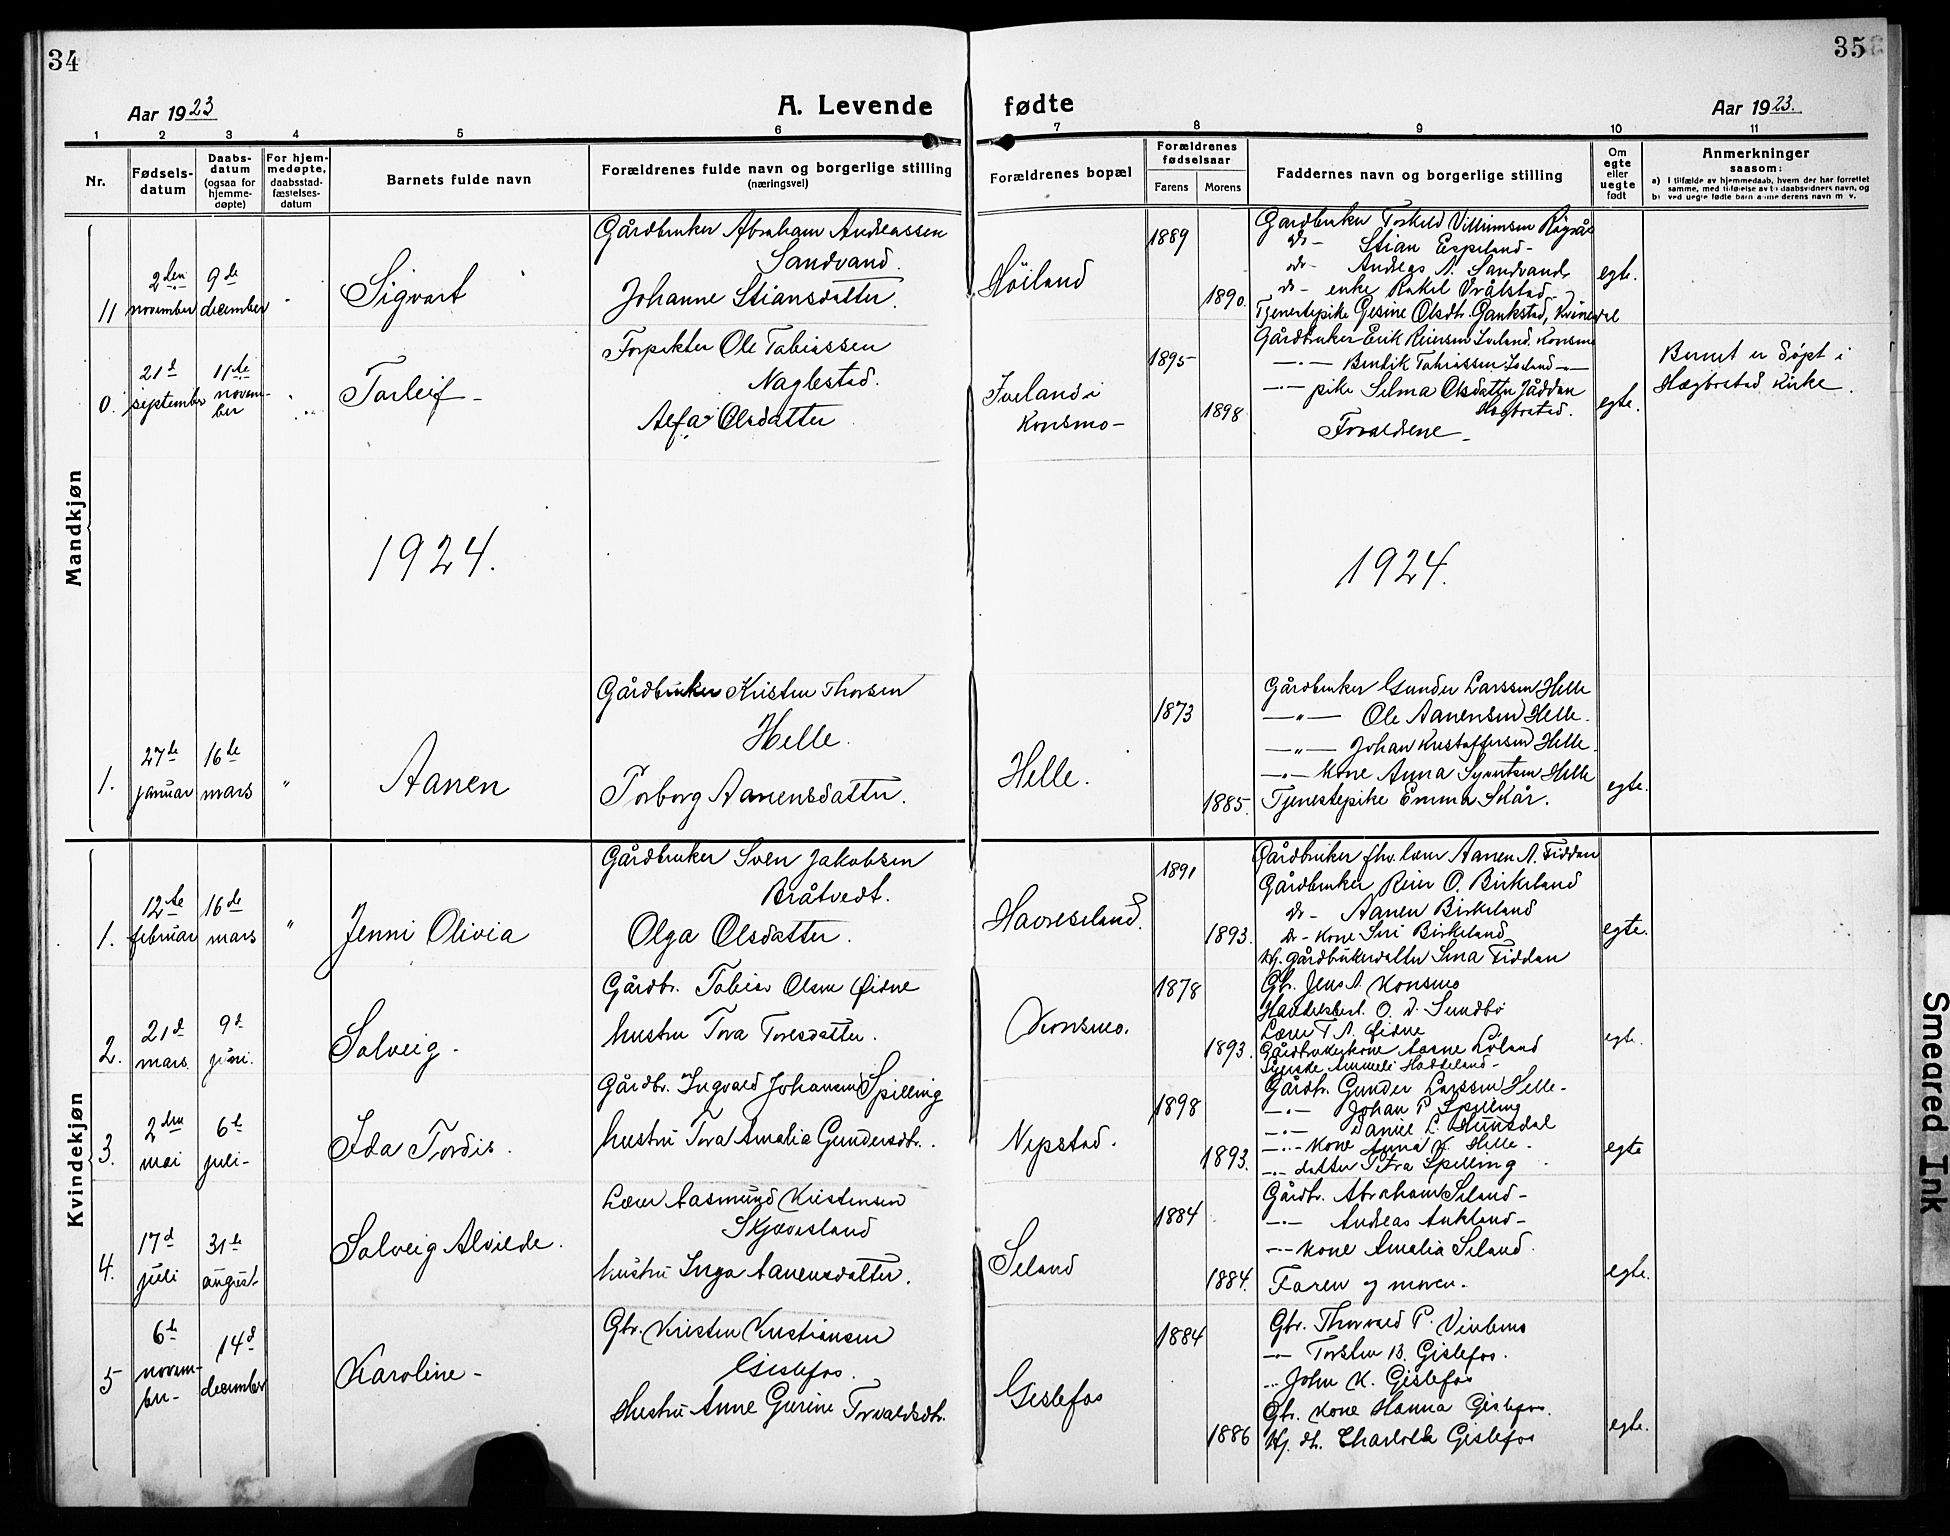 34
35
Aar 1923
A. Levende
fødte
Aar 1923.
1 2 3 4 5 6 7 8 9 10 11
Nr.
Fødsels-
datum
Daabs-
datum
(ogsaa for
hjemme-
døpte)
For hjem-
medøpte,
daabsstad-
fæstelses-
datum
Barnets fulde navn
Forældrenes fulde navn og borgerlige stilling
(næringsvei)
Forældrenes bopæl
Forældrenes
fødselsaar
Farens Morens
Faddernes navn og borgerlige stilling
Om
egte
eller
uegte
født
Anmerkninger
saasom:
a) I tilfælde av hjemmedaab, hvem der har forrettet
samme, med tilføielse av to daabsvidners navn, og
b) ved uegte fødte barn
Mandkjøn
11
2den
november
9de
december
"
Sigvart
Gårdbruker Abraham Andreassen
Sandvand.
Johanne Stiansdatter.
Høiland
1889
1890.
Gardbruker Torkild Villumsen
do- Stian Espeland-
do- Andreas A. Sandvand
do- enke Rakel Vrålstad
Tjenestepike Gesine Olsdtr.
egte.
0.
21d
september
11te
novem-
ber
"
Torleif -
Forpakter Ole Tobiassen
Naglestad.
Alfa Olsdatter
Iveland i
Konsmo-
1895
1898
Gårdbruker Erik Reiersen Iveland, Konsmo
-"- Bendik Tobiassen Iveland -"-
-"- pike Selma Olsdatter
Hægbostad.
Forældrene -
egte.
Barnet er døpt i
Hægbostad Kirke.
1924.
1924.
1.
27de
januar
16de
mars
"
Aanen
Gårdbruker Kristen Thorsen
Helle.
Torborg Aanensdatter.
Helle.
1873
1885.
Gårdbruker Gunder Larssen Helle
-"- Ole Aanensen Helle-
-"- Johan Kristoffersen Helle-
-"- kone Anna Syvertsen Helle
Tjenestepike Emma Skår.
egte.
Kvindekjøn
1.
12te
februar
16de
mars
"
Jenni Olivia
Gårdbruker Sven Jakobsen
Bråtvedt.
Olga Olsdatter.
Havreseland.
1891
1893.
Gårdbruker fhv. lærer Aanen A. Fiddan
Gårdbruker Reier O. Birkeland
do- Aanen Birkeland
do- kone Siri Birkeland
Hj. gårdbrukerdatter Sina Fiddan
egte.
2.
21d
mars
9d
juni.
Solveig.
Gårdbr. Tobias Olsen Øidne
hustru Tora Toresdatter.
Konsmo.
1878
1893.
Gbr. Jens A. Konsmo
Handelsbest. O. D. Sundbø
Lærer T A. Øidne
Gårdbrukerkone Aasne Løland
Syerske Ammeli
egte.
3.
2den
mai
6te
juli-
Ida Tordis.
Gårdbr. Ingvald Johansen Spilling
hustru Tora Amalia Gundersdtr.
Nepstad.
1898
1893.
Gårdbr. Gunder Larssen Helle-
-"- Johan P Spilling
-"- Daniel L. Hunsdal
-"- kone Anna K. Helle-
-"- datter Petra Spilling
egte
4.
17d
juli
31te
august
Solveig Alvilde.
Lærer Aasmund Kristensen
Skjævesland
hustru Inga Aanensdatter.
Seland
1884
1884.
Gårdbr. Abraham Seland-
-"- Andreas Aukland-
-"- kone Amalia Seland.
Faren og moren.
egte.
5
6te
novem-
ber-
14d
december
Karoline-
Gbr. Kristen Kristiansen
Gislefos.
Hustru Anne Gurine Torvaldsdtr.
Gislefos
1884
1886
Gbr. Thorvald P. Viblemo
-"- Torsten B. Gislefos.
-"- John K. Gislefos
Gbr. kone Hanna Gislefos.
Hj. dtr. Charlotte Gislefos
egte.
Smeared Ink